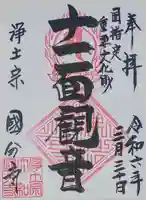 奉拝
国指定
重要文化財
令和六年
三月三十日
十一面観音
浄土宗
國分寺